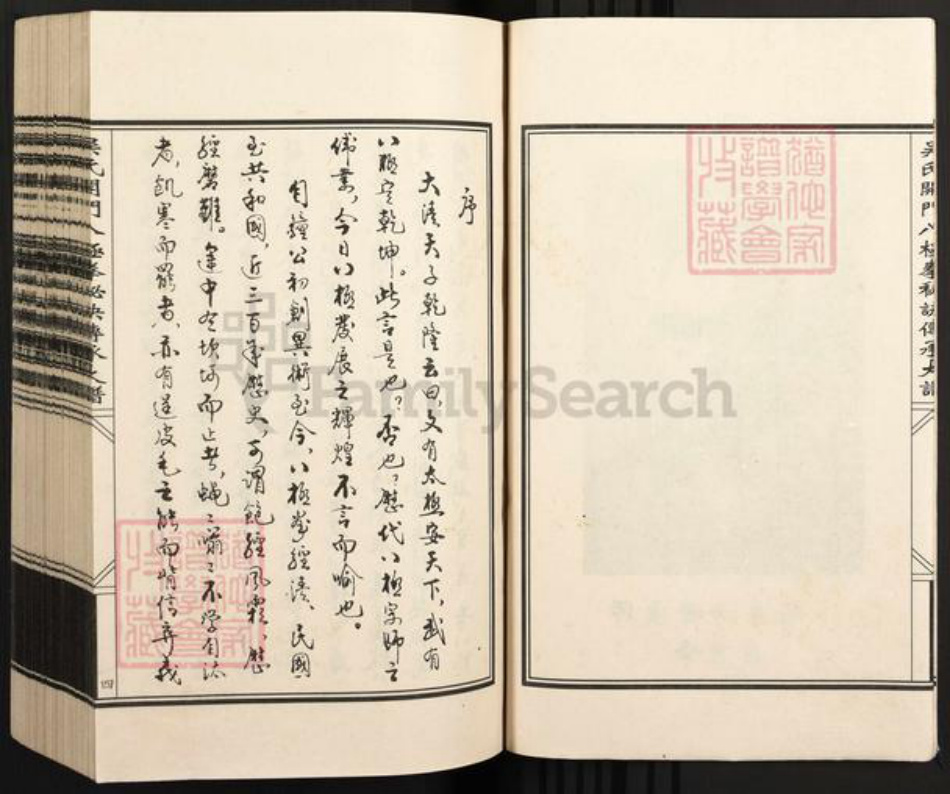 吳氏開門八極拳秘訣傳承大譜
猶他家譜學會收藏
序
大清天子乾隆云曰,文有太極安天下,武有
八極定乾坤。此言是也?否也?歷代八極宗師之
偉業,今日八極發展之輝煌不言而喻也。
自鐘公初創異術至今,八極拳經清、民國
至共和國,近三百年歷史,可謂飽經風霜,歷
經磨難。途中名坎坷而止者,蠅蠅嗡嗡不學自法
者,飢寒而罷者,亦有逞皮毛之能而背信棄義
猶他家譜學會收藏
四
FamilySearch